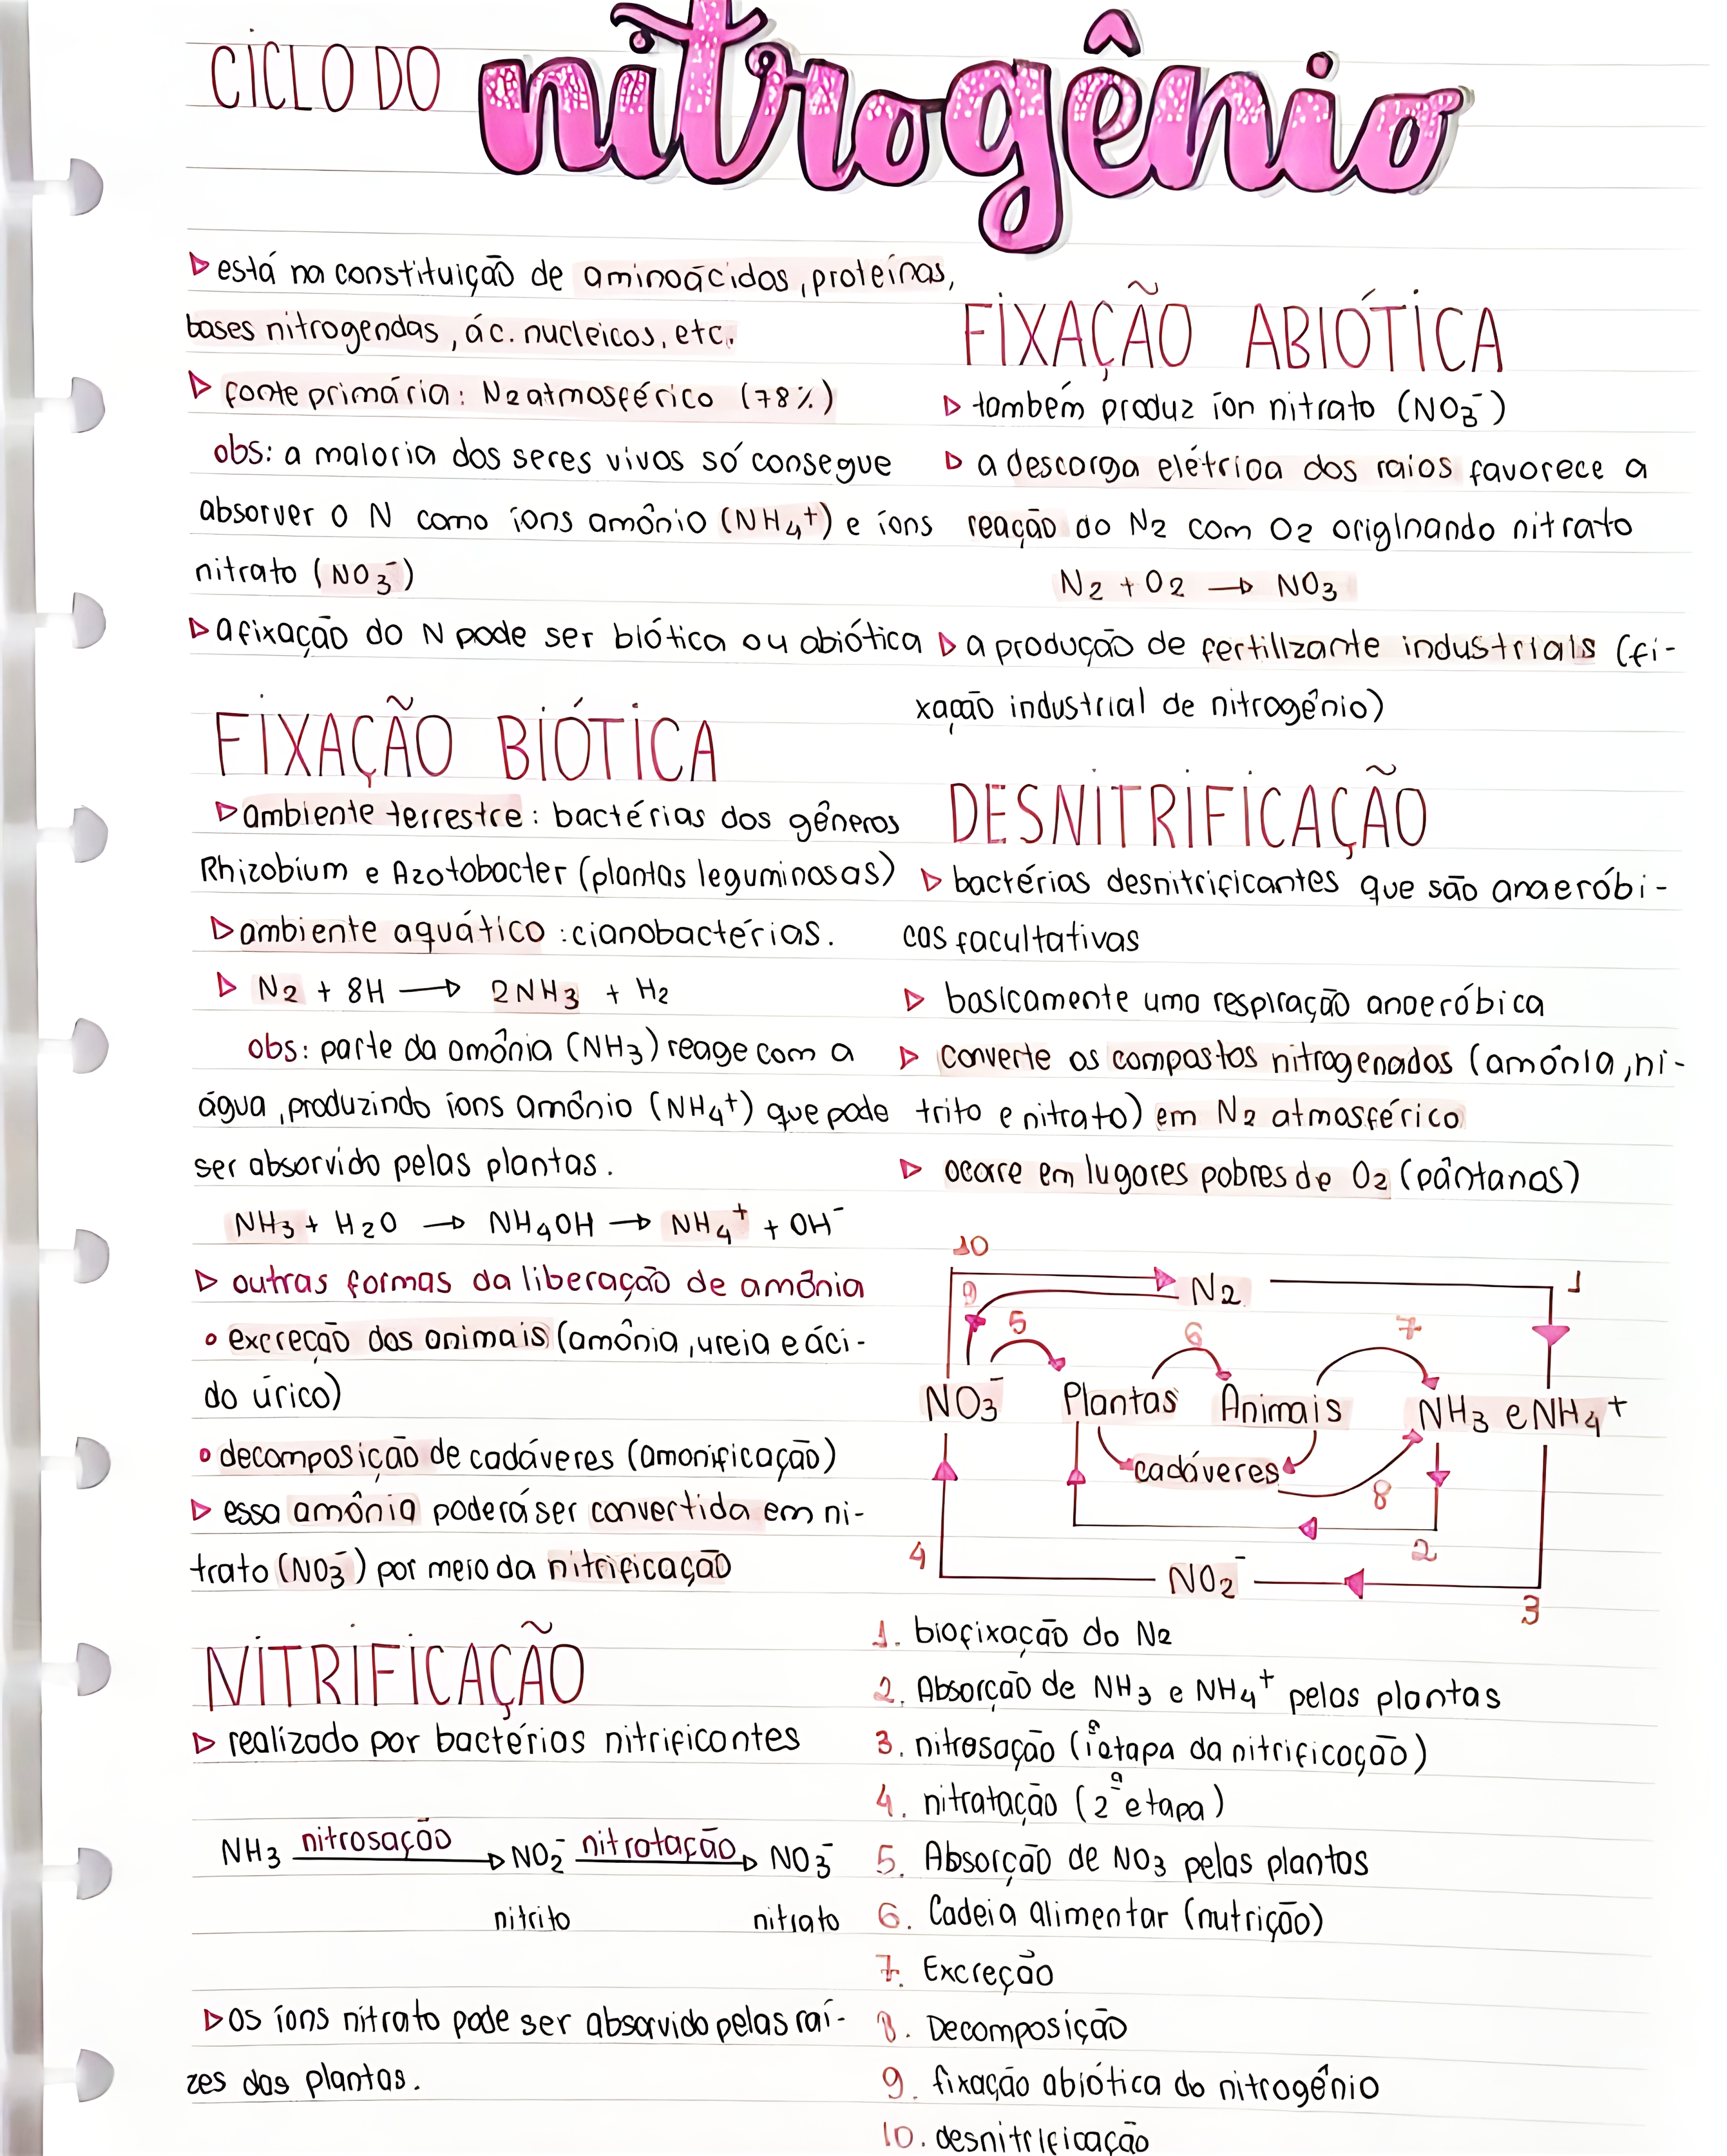 CICLO DO nitrogênio
▷ está na constituição de aminoácidos, proteínas,
bases nitrogendas, ác. nucleicos, etc.
▷ fonte primária: N2 atmosférico (78%)
obs: a maioria dos seres vivos só consegue
absorver o N como íons amônio (NH4+) e íons
nitrato (NO3-)
▷ a fixação do N pode ser biótica ou abiótica
FIXAÇÃO BIÓTICA
▷ ambiente terrestre: bactérias dos gêneros
Rhizobium e Azotobacter (plantas leguminosas)
▷ ambiente aquático: cianobactérias.
▷ N2 + 8H → 2NH3 + H2
obs: parte da amônia (NH3) reage com a
água, produzindo íons amônio (NH4+) que pode
ser absorvido pelas plantas.
NH3 + H2O → NH4OH → NH4+ + OH-
▷ outras formas da liberação de amônia
• excreção dos animais (amônia, ureia e áci-
do úrico)
• decomposição de cadáveres (amonificação)
▷ essa amônia poderá ser convertida em ni-
trato (NO3-) por meio da nitrificação
NITRIFICAÇÃO
▷ realizado por bactérias nitrificantes
NH3 nitrosação → NO2- nitratação → NO3-
nitrito nitrato
▷ os íons nitrato pode ser absorvido pelas raí-
zes das plantas.
FIXAÇÃO ABIÓTICA
▷ também produz íon nitrato (NO3-)
▷ a descarga elétrica dos raios favorece a
reação do N2 com O2 originando nitrato
N2 + O2 → NO3
▷ a produção de fertilizante industriais (fi-
xação industrial de nitrogênio)
DESNITRIFICAÇÃO
▷ bactérias desnitrificantes que são anaeróbi-
cas facultativas
▷ basicamente uma respiração anaeróbica
▷ converte os compostos nitrogenados (amônia, ni-
trito e nitrato) em N2 atmosférico
▷ ocorre em lugares pobres de O2 (pântanos)
10
N2 1
9 5 6 7
NO3- Plantas Animais NH3 e NH4+
cadáveres
8
4 2
NO2-
3
1. biofixação do N2
2. Absorção de NH3 e NH4+ pelas plantas
3. nitrosação (1ª etapa da nitrificação)
4. nitratação (2ª etapa)
5. Absorção de NO3 pelas plantas
6. Cadeia alimentar (nutrição)
7. Excreção
8. Decomposição
9. fixação abiótica do nitrogênio
10. desnitrificação